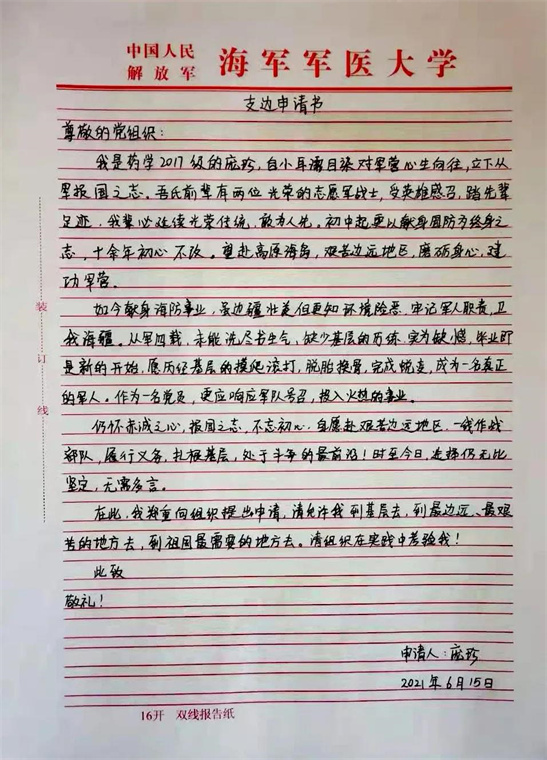 中国人民
解放军 海军军医大学
支边申请书
尊敬的党组织：
我是药学2017级的庞珍，自小耳濡目染对军营心生向往，立下从
军报国之志。吾氏前辈有两位光荣的志愿军战士，受英雄感召，踏先辈
足迹，我辈必延续光荣传统，敢为人先。初中起更以献身国防为终身之
志，十余年初心不改。望赴高原海岛，艰苦边远地区，磨砺身心，建
功军营。
如今献身海防事业，爱边疆壮美但更知环境险恶，牢记军人职责，卫
我海疆。从军四载，未能洗尽书生气，缺少基层的历练，实为缺憾，毕业即
是新的开始，愿历经基层的摸爬滚打，脱胎换骨，完成蜕变，成为一名真正
的军人。作为一名党员，更应响应军队号召，投入火热的事业。
仍怀赤诚之心，报国之志，不忘初心，自愿赴艰苦边远地区，一线作战
部队，履行义务，扎根基层，处于斗争的最前沿！时至今日，选择仍无比
坚定，无需多言。
在此，我郑重向组织提出申请，请允许我到基层去，到最边远、最艰
苦的地方去，到祖国最需要的地方去。请组织在实践中考验我！
此致
敬礼！
申请人：庞珍
2021年6月15日
装
订
线
16开 双线报告纸